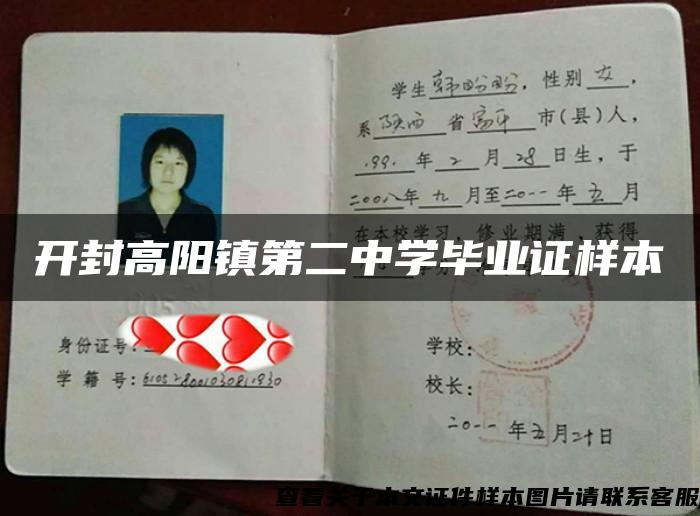 学生韩盼盼，性别女，
系陕西省富平市(县)人，
199.年2月28日生，于
二〇〇八年九月至二〇一一年五月
在本校学习，修业期满，获得
开封高阳镇第二中学毕业证样本
身份证号:
学籍号:
学校:
校长:
二〇一一年五月二十日
查看关于本文证件样本图片请联系客服